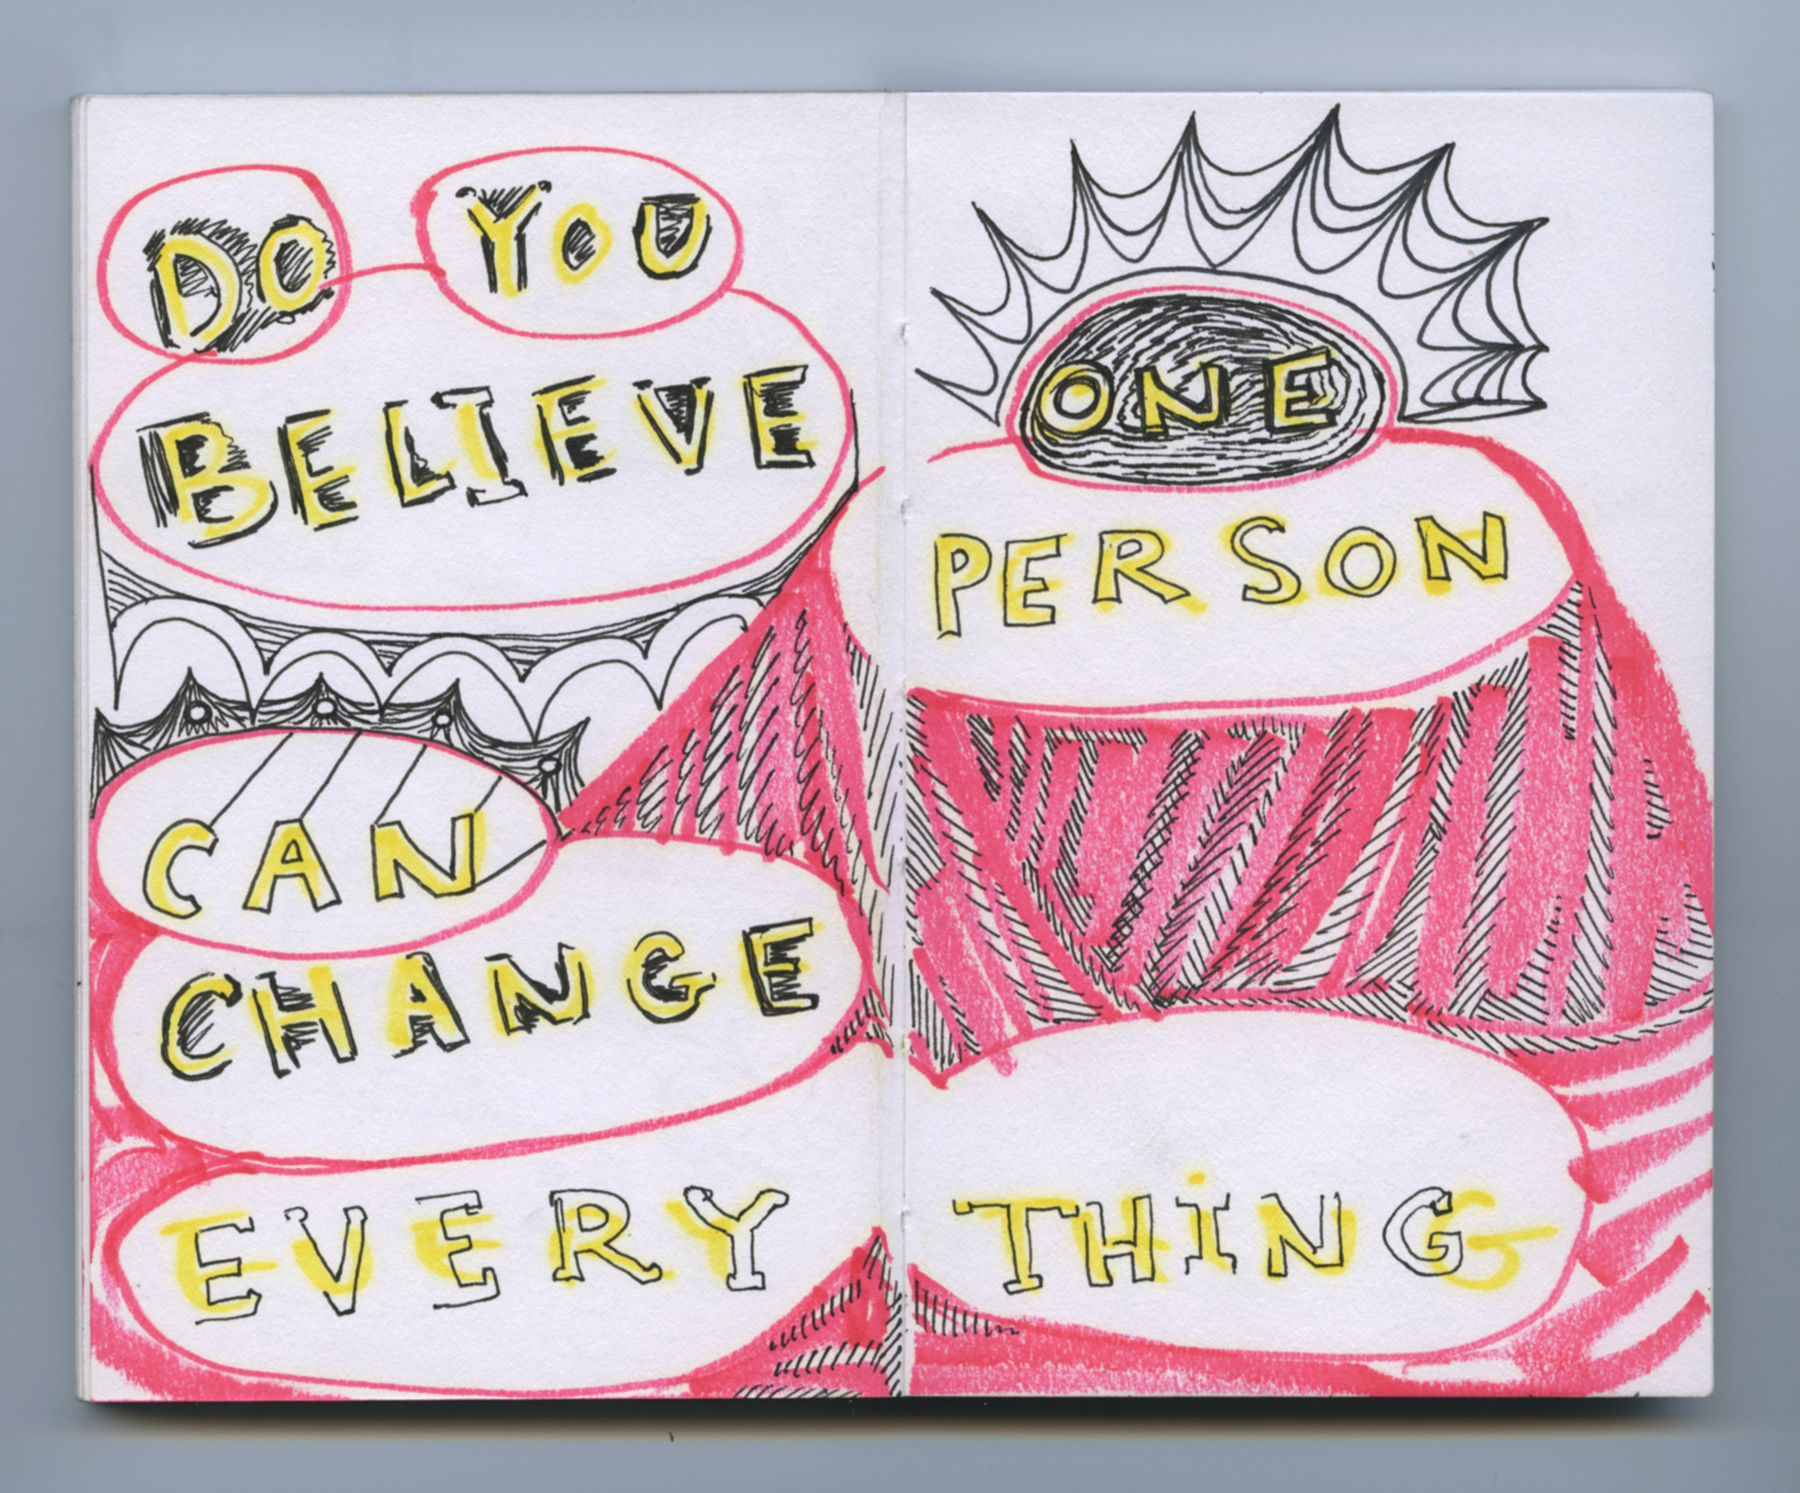 DO YOU
BELIEVE
ONE
PERSON
CAN
CHANGE
EVERY THING